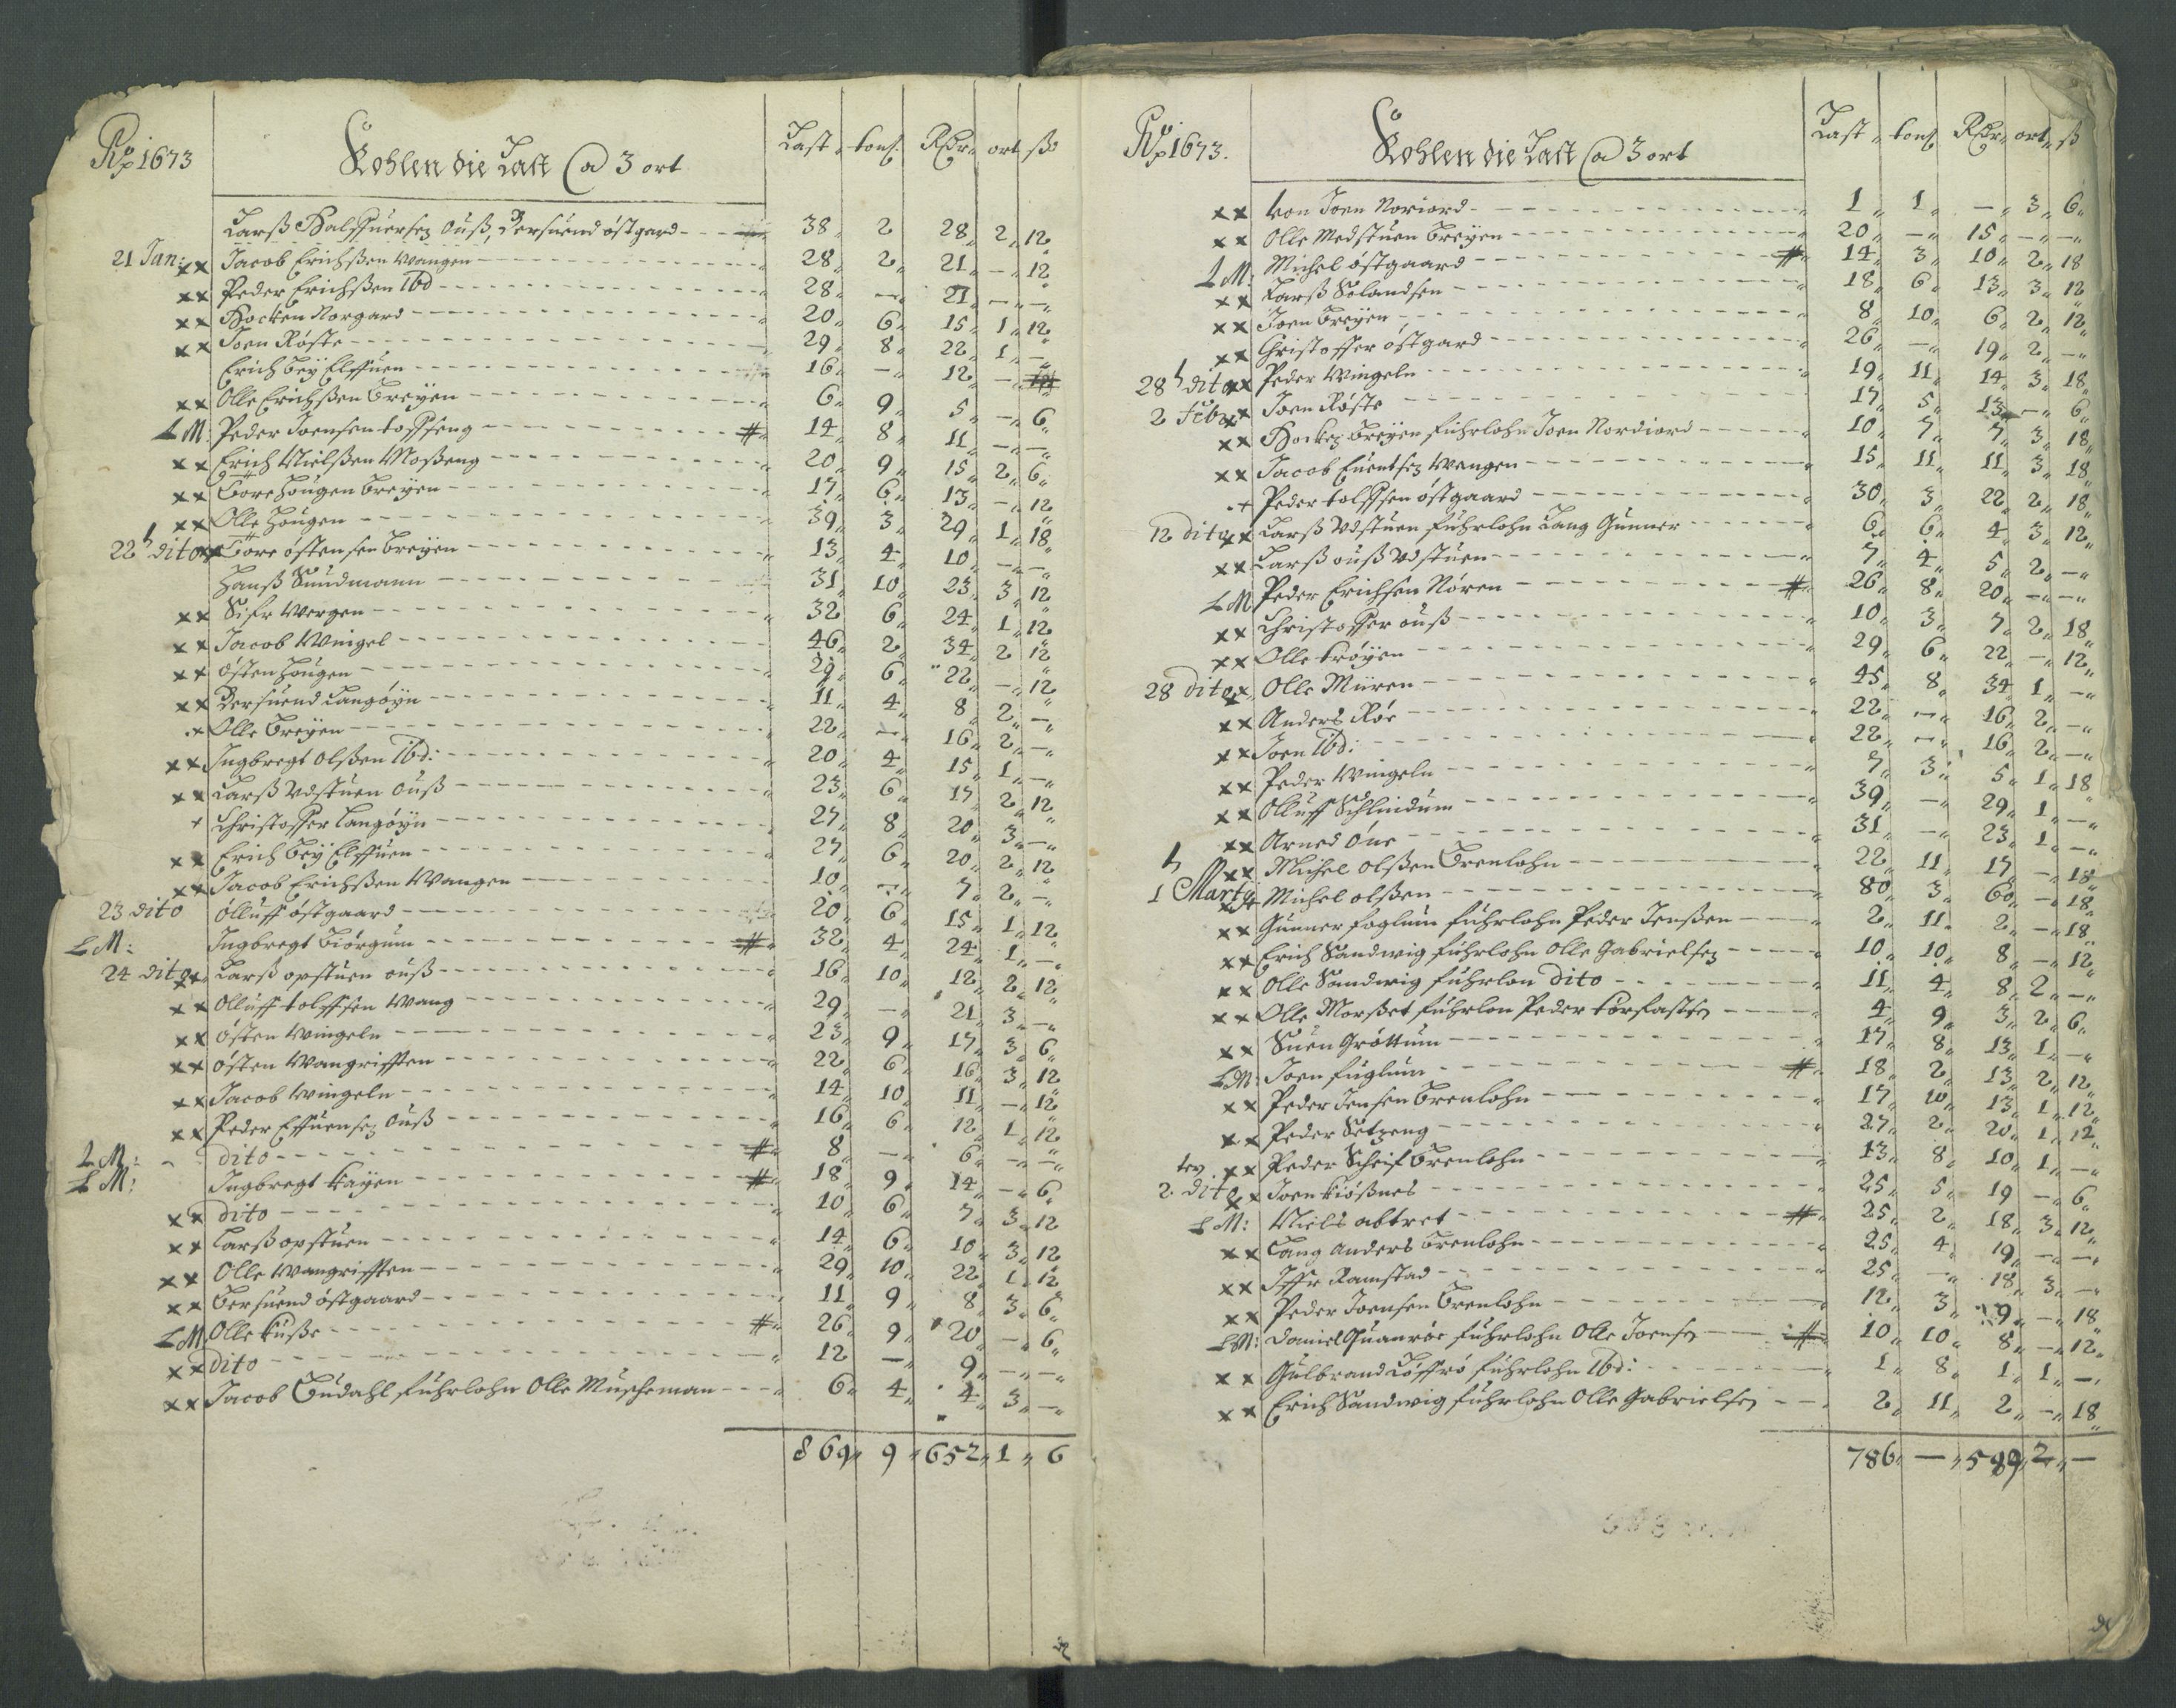 Aō 1673 Kohlen die Last @ 3 ort Last tonß Rdr ort ßs
Larß Halffuersen Ouß, Bersuend östgard 38 2 28 2 12
21 Jan: xx Jacob Erichßen Wangen 28 2 21 — 12
xx Peder Erichßen Ibd 28 — 21 — —
xx Hocken Norgard 20 6 15 1 12
xx Joen Röste 29 8 22 1 —
Erich beÿ Elffuen 16 — 12 —
xx Olle Erichßen Breÿen 6 9 5 — 6
LM: Peder Joensen # 14 8 11 — —
xx Erich Nielßen Moßeng 20 9 15 2 6
xx Tore Haugen Breÿen 17 6 13 — 12
xx Olle Haugen 39 3 29 1 18
22 dito xx Tore östensen Breÿen 13 4 10 — —
Hanß Sundmann 31 10 23 3 12
xx Sifr Wergen 32 6 24 1 12
xx Jacob Wingel 46 2 34 2 12
xx östen Haugen 29 6 22 — 12
xx Bersuend Langöÿn 11 4 8 2 —
x Olle Breÿen 22 — 16 2 —
xx Ingbregt Olßen Ibd: 20 4 15 1 —
xx Larß Vdstuen Ouß 23 6 17 2 12
x Christoffer Langöÿn 27 8 20 3 —
xx Erich beÿ Elffuen 27 6 20 2 12
xx Jacob Erichßen Wangen 10 — 7 2 —
23 dito Olluff östgaard 20 6 15 1 12
LM: Ingbregt Biörgum # 32 4 24 1 —
24 dito xx Larß opstuen ouß 16 10 12 2 12
xx Olluff tolffsen Wang 29 — 21 3 —
xx östen Wingeln 23 9 17 3 6
xx östen Wangrifften 22 6 16 3 12
xx Jacob Wingeln 14 10 11 — 12
xx Peder Effuensen Ouß 16 6 12 1 12
LM: dito # 8 — 6 — —
LM: Ingbregt Kaÿen # 18 9 14 — 6
xx dito 10 6 7 3 12
xx Larß opstuen 14 6 10 3 12
xx Olle Wangrifften 29 10 22 1 12
xx Bersuend östgaard 11 9 8 3 6
LM Olle kuße # 26 9 20 — 6
xx dito 12 — 9 — —
xx Jacob Gudahl fuhrlohn Olle Muscheman 6 4 4 3 —
869 9 652 1 6
Aō 1673. Kohlen die Last @ 3 ort Last tonß Rdr ort ß
xx von Joen Noriord 1 1 — 3 6
xx Olle Medstuen Breÿen 20 — 15 — —
LM: Michel östgaard # 14 3 10 2 18
xx Larß Solandsen 18 6 13 3 12
xx Joen Breÿen 8 10 6 2 12
xx Christoffer östgard 26 — 19 2 —
28 dito xx Peder Wingeln 19 11 14 3 18
2 Febr xx Joen Röste 17 5 13 — 6
xx Hocken Breÿen fuhrlohn Joen Nordiord 10 7 7 3 18
xx Jacob Euentsen Wangen 15 11 11 3 18
x Peder tolffsen östgaard 30 3 22 2 18
12 dito xx Larß Vdstuen fuhrlohn Lang Gunner 6 6 4 3 12
xx Larß ouß Vdstuen 7 4 5 2 —
LM Peder Erichsen Nören # 26 8 20 — —
xx Christoffer ouß 10 3 7 2 18
xx Olle tröÿen 29 6 22 — 12
28 dito xx Olle Müren 45 8 34 1 —
xx Anders Röe 22 — 16 2 —
xx Joen Ibd: 22 — 16 2 —
xx Peder Wingeln 7 3 5 1 18
xx Olluff Schlindum 39 — 29 1 —
xx Arned öne 31 — 23 1 —
xx Michel Olßen Brenlohn 22 11 17 — 18
1 Marty xx Michel olßen 80 3 60 — 18
xx Gunner foglum fuhrlohn Peder Jenßen 2 11 2 — 18
xx Erich Sandwig fuhrlohn Olle Gabrielsen 10 10 8 — 12
xx Olle Sandwig fuhrlon dito 11 4 8 2 —
xx Olle Morßet fuhrlon Peder torfastsen 4 9 3 2 6
xx Suen Gröttum 17 8 13 1 —
LM: Joen fuglum # 18 2 13 2 12
xx Peder Jensen Brenlohn 17 10 13 1 12
xx Peder Setzeng 27 2 20 1 12
xx Peder Schrif Brenlohn 13 8 10 1 —
2 dito x Joen kiößnes 25 5 19 — 6
LM: Niels abtret # 25 2 18 3 12
xx Lang anders Brenlohn 25 4 19 — —
xx Iffr Ramstad 25 — 18 3 —
xx Peder Joensen Brenlohn 12 3 9 — 18
LM: Daniel Quanröe fuhrlohn Olle Joensen # 10 10 8 — 12
xx Gulbrand Löffrö fuhrlohn Ibd: 1 8 1 1 —
xx Erich Sandwig fuhrlohn Olle Gabrielsen 2 11 2 — 18
786 — 589 2 —